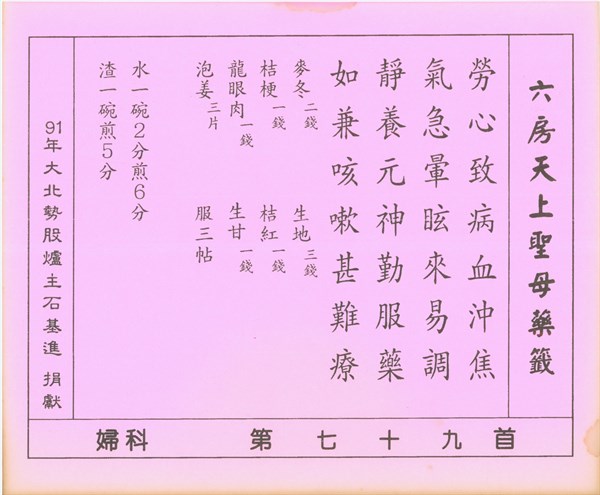 六房天上聖母藥籤
勞心致病血沖焦
氣急暈眩來易調
靜養元神勤服藥
如兼咳嗽甚難療
麥冬二錢 生地三錢
桔梗一錢 桔紅一錢
龍眼肉一錢 生甘一錢
泡姜三片 服三帖
水一碗2分煎6分
渣一碗煎5分
91年大北勢股爐主石基進 捐獻
婦科 第七十九首